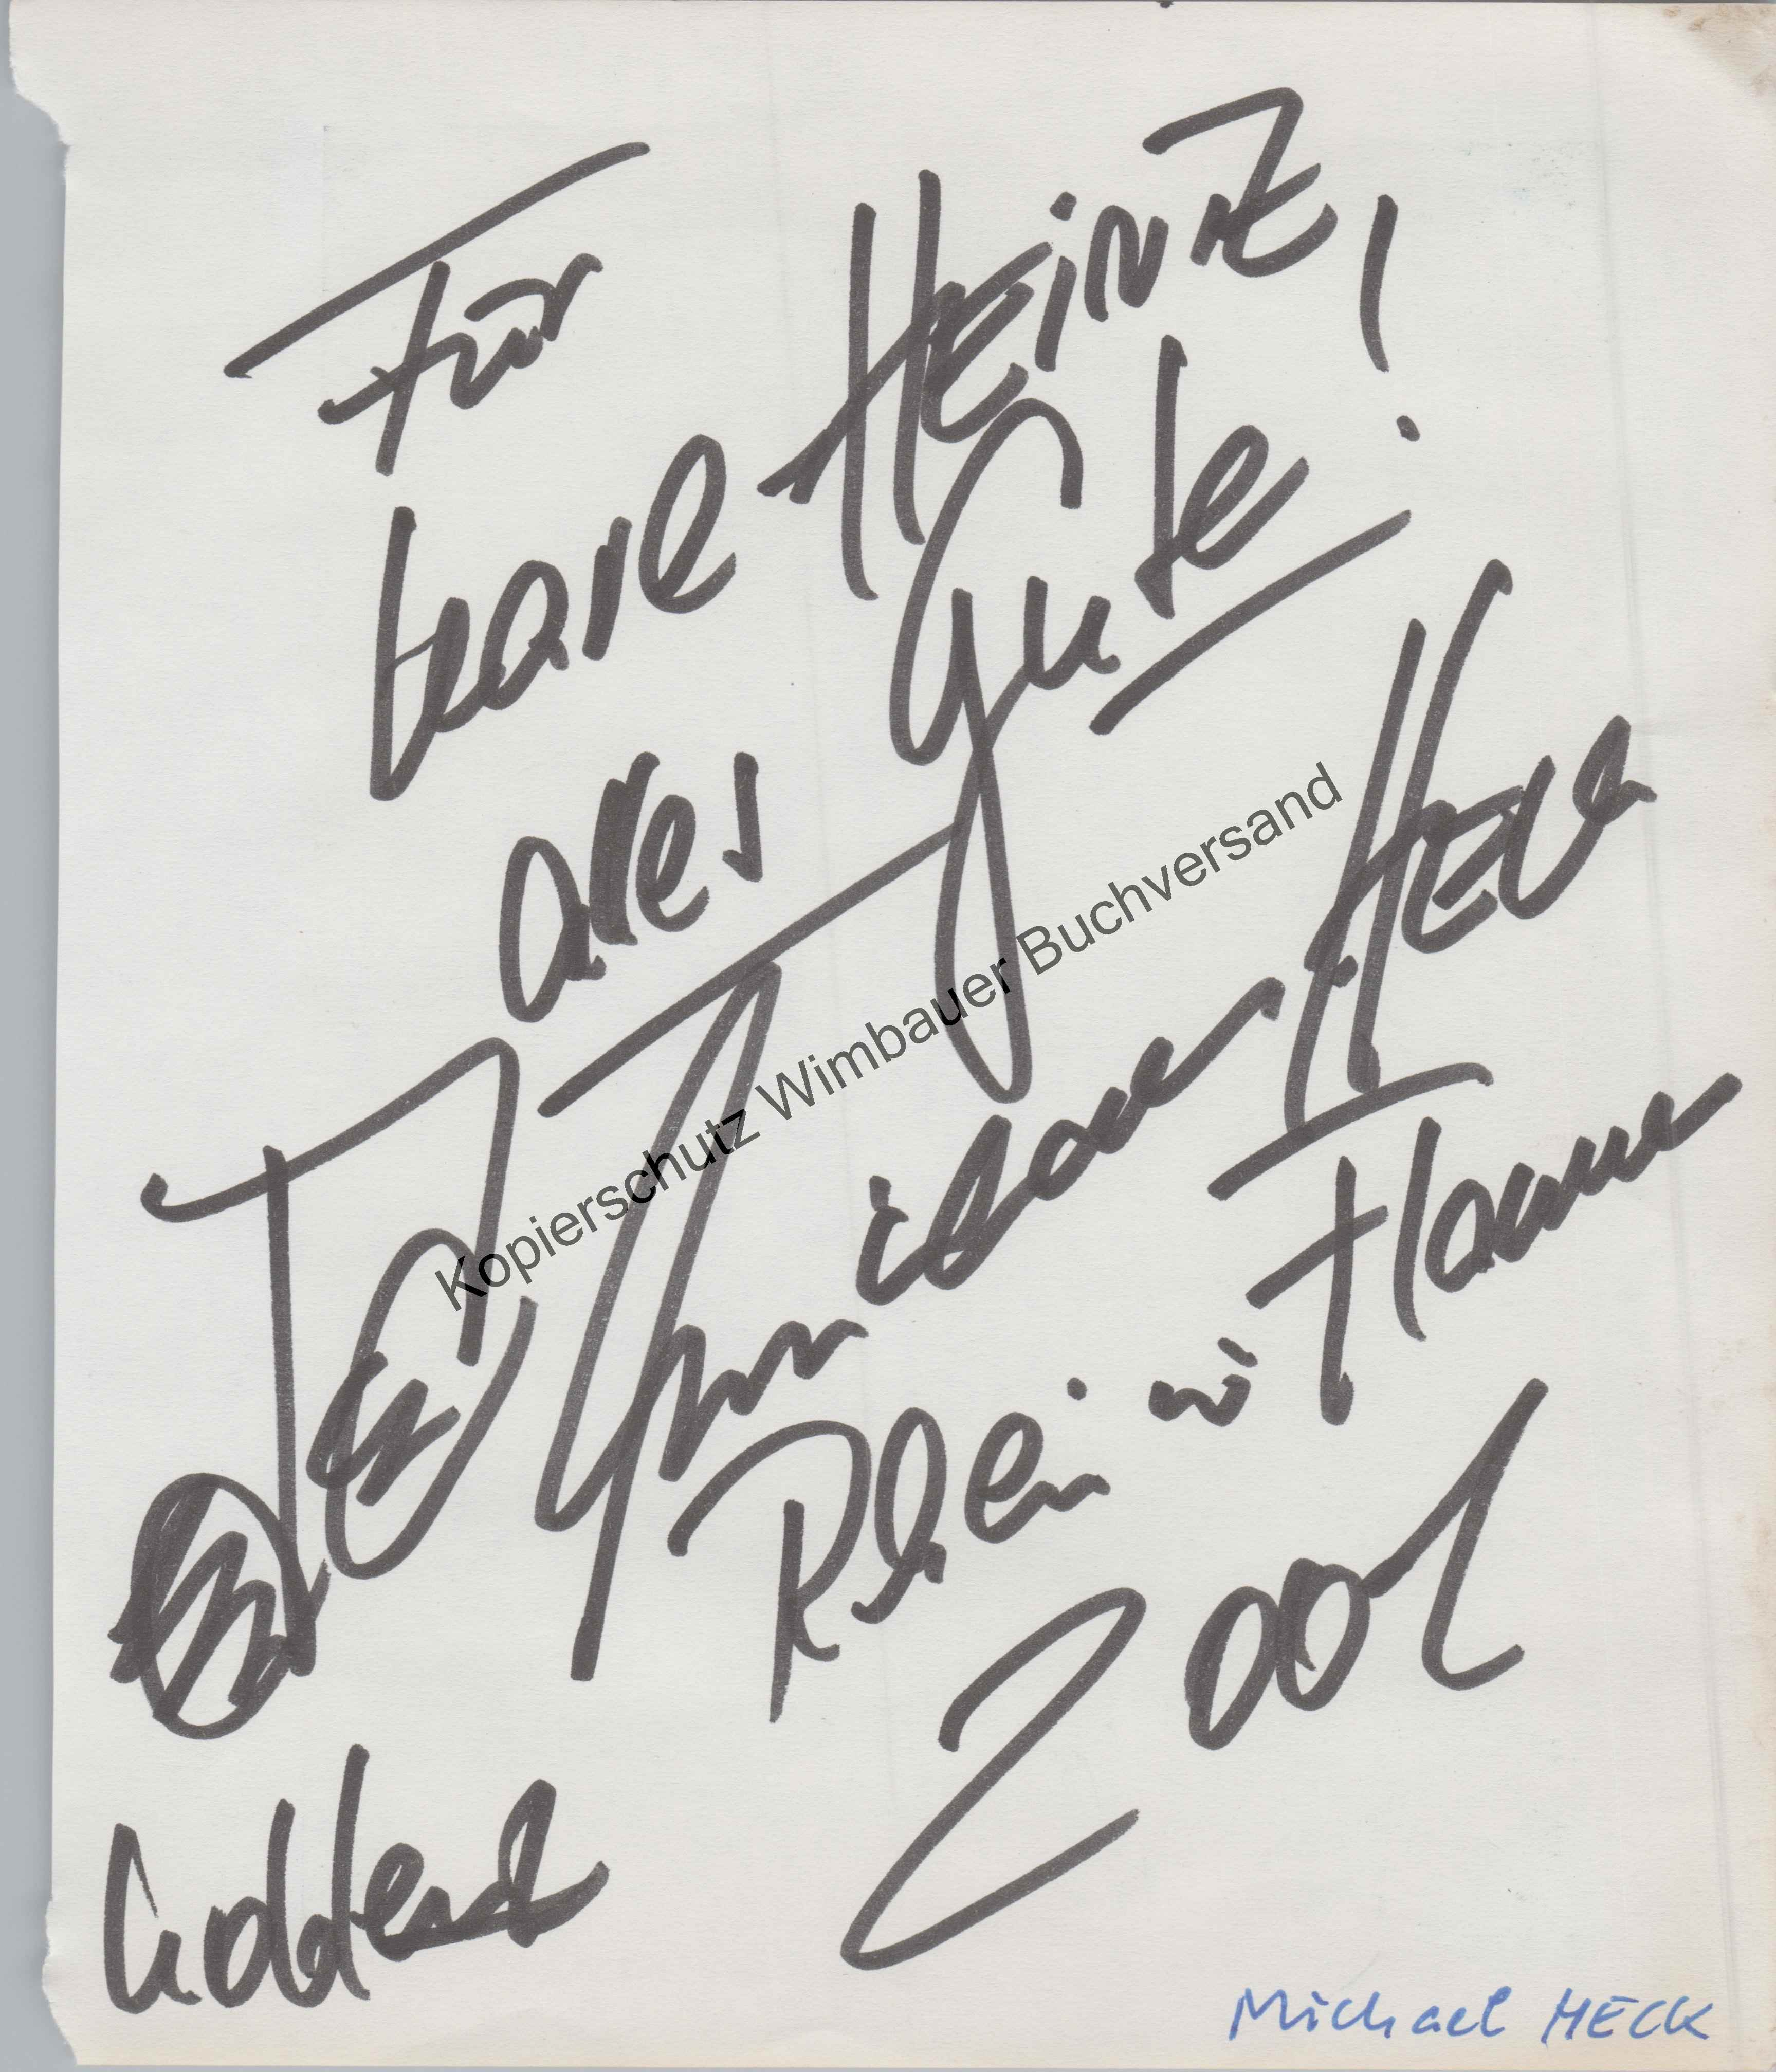 Für
Karl-HEiNZ
alles Gute!
Dein
Michael HECK
Rhein in Flammen
2001
Koblenz
Kopierschutz Wimbauer Buchversand
Michael HECK